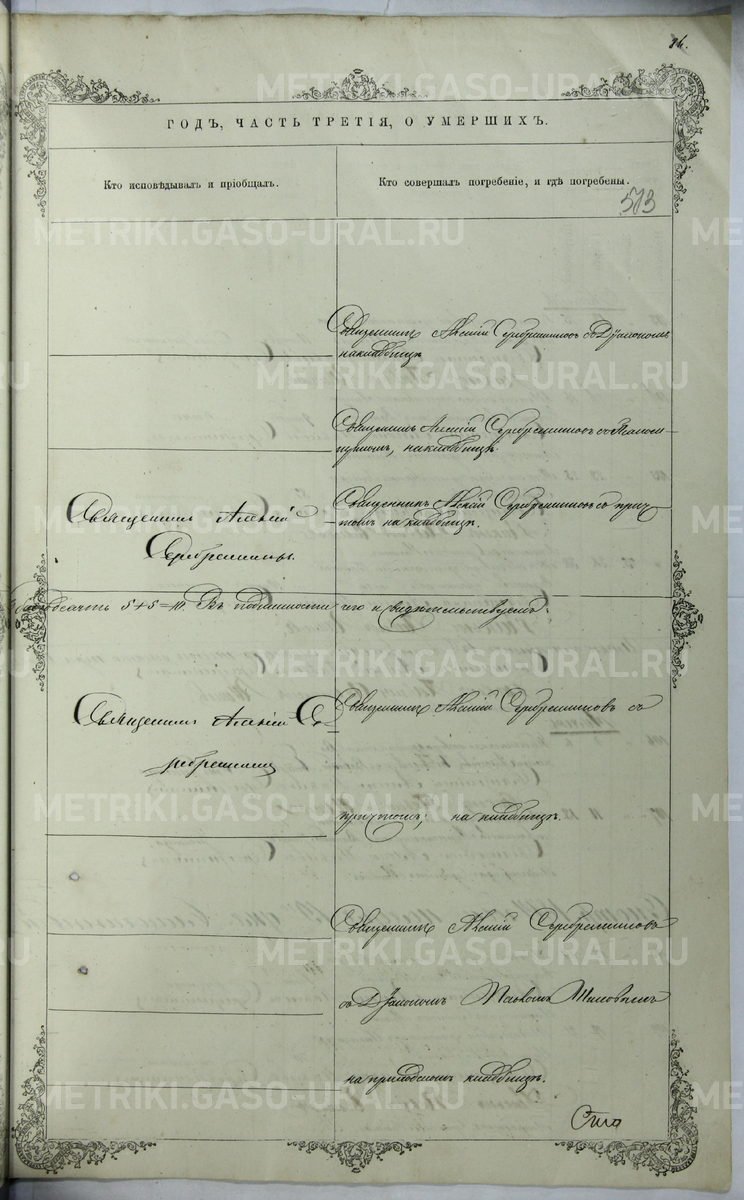 96.
ГОДЪ, ЧАСТЬ ТРЕТІЯ, О УМЕРШИХЪ.
Кто исповѣдывалъ и пріобщалъ.
Кто совершалъ погребеніе, и гдѣ погребены.
513
Священникъ Алексій Серебренниковъ съ Діакономъ
на кладбищѣ
Священникъ Алексій Серебренниковъ съ
на кладбищѣ.
Священникъ Алексій
Серебренниковъ.
Священникъ Алексій Серебренниковъ съ прич-
томъ на кладбищѣ.
5+5=10. Въ подлинности чего и свидѣтельствуемъ:
Священникъ Алексій Се-
ребренниковъ
Священникъ Алексій Серебренниковъ съ
причтомъ, на кладбищѣ.
Священникъ Алексій Серебренниковъ
съ Діакономъ
на приходскомъ кладбищѣ.
METRIKI.GASO-URAL.RU